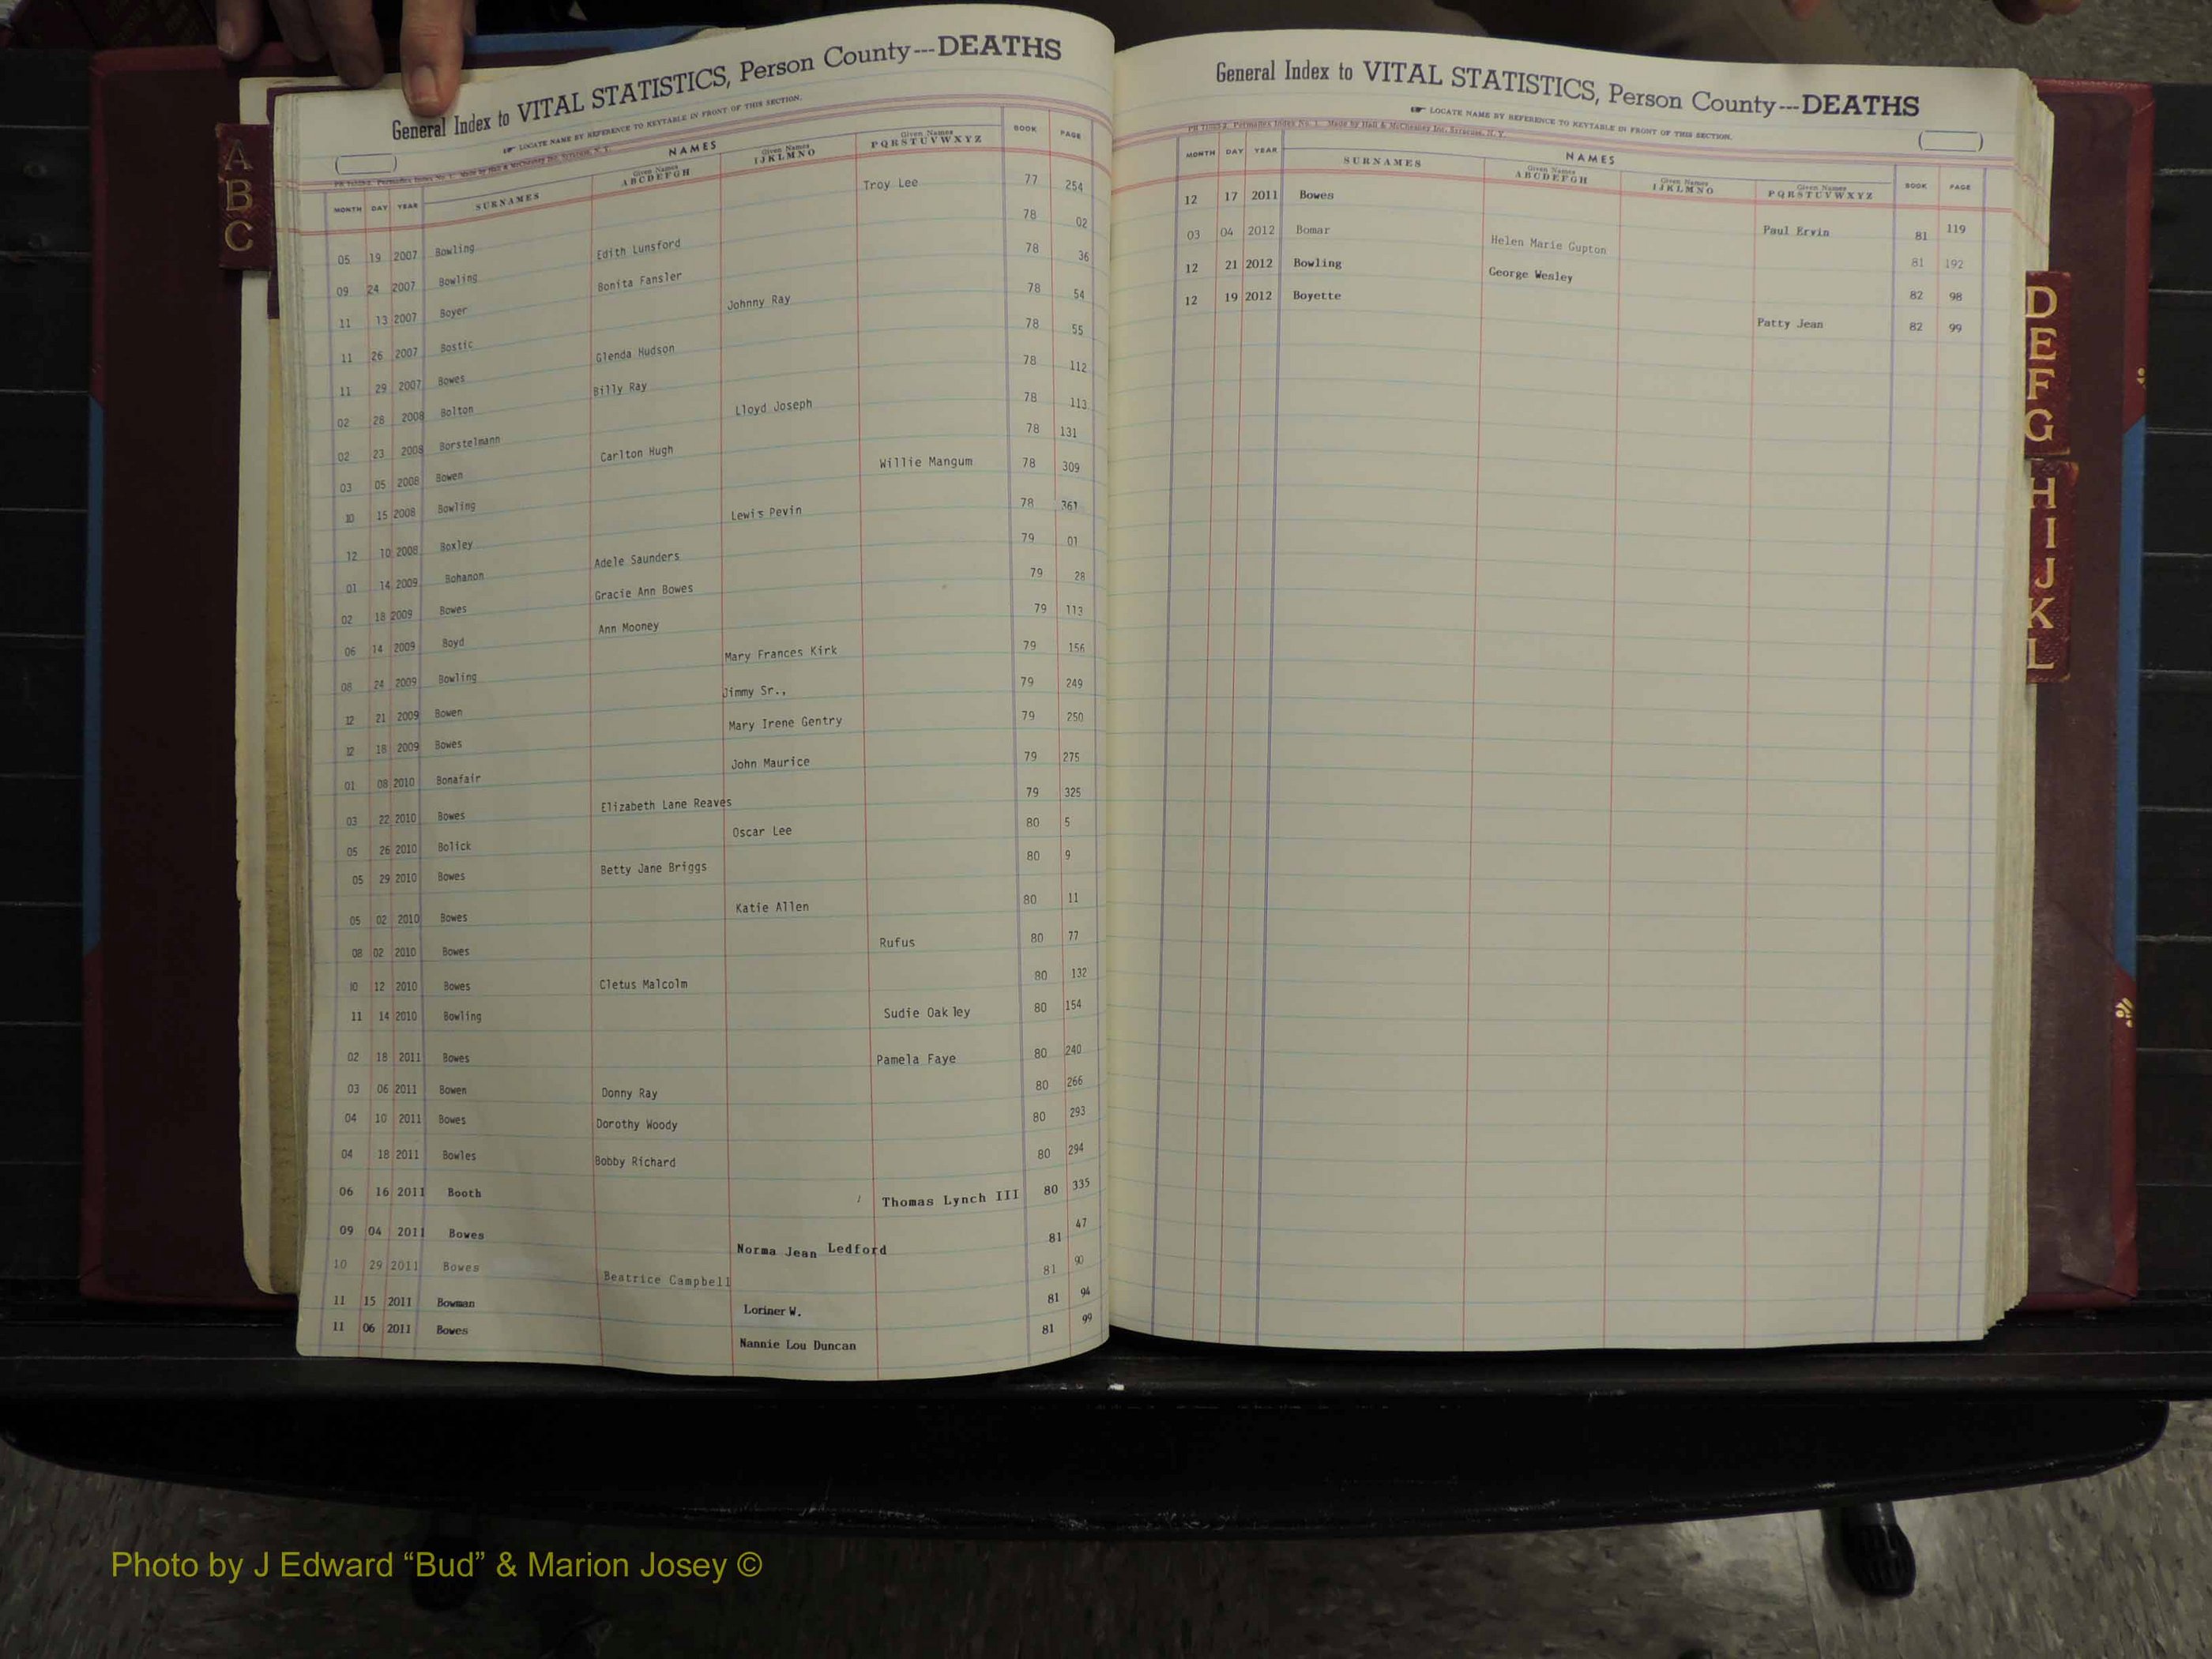 General Index to VITAL STATISTICS, Person County---DEATHS
LOCATE NAME BY REFERENCE TO KEYTABLE IN FRONT OF THIS SECTION.
NAMES
MONTH DAY YEAR SURNAMES Given Names ABCDEFGH Given Names IJKLMNO Given Names PQRSTUVWXYZ BOOK PAGE
05 19 2007 Bowling Troy Lee 77 254
09 24 2007 Bowling Edith Lunsford 78 02
11 13 2007 Boyer Bonita Fansler 78 36
11 26 2007 Bostic Johnny Ray 78 54
11 29 2007 Bowes Glenda Hudson 78 55
02 28 2008 Bolton Billy Ray 78 112
02 23 2008 Borstelmann Lloyd Joseph 78 113
03 05 2008 Bowen Carlton Hugh 78 131
10 15 2008 Bowling Willie Mangum 78 309
12 10 2008 Boxley Lewis Pevin 78 361
01 14 2009 Bohanon Adele Saunders 79 01
02 18 2009 Bowes Gracie Ann Bowes 79 28
06 14 2009 Boyd Ann Mooney 79 113
08 24 2009 Bowling Mary Frances Kirk 79 156
12 21 2009 Bowen Jimmy Sr., 79 249
12 18 2009 Bowes Mary Irene Gentry 79 250
01 08 2010 Bonafair John Maurice 79 275
03 22 2010 Bowes Elizabeth Lane Reaves 79 325
05 26 2010 Bolick Oscar Lee 80 5
05 29 2010 Bowes Betty Jane Briggs 80 9
05 02 2010 Bowes Katie Allen 80 11
08 02 2010 Bowes Rufus 80 77
10 12 2010 Bowes Cletus Malcolm 80 132
11 14 2010 Bowling Sudie Oakley 80 154
02 18 2011 Bowes Pamela Faye 80 240
03 06 2011 Bowen Donny Ray 80 266
04 10 2011 Bowes Dorothy Woody 80 293
04 18 2011 Bowles Bobby Richard 80 294
06 16 2011 Booth Thomas Lynch III 80 335
09 04 2011 Bowes Norma Jean Ledford 81 47
10 29 2011 Bowes Beatrice Campbell 81 90
11 15 2011 Bowman Loriner W. 81 94
11 06 2011 Bowes Nannie Lou Duncan 81 99
General Index to VITAL STATISTICS, Person County---DEATHS
LOCATE NAME BY REFERENCE TO KEYTABLE IN FRONT OF THIS SECTION.
Permaflex Index No. 1 Made by Hall & McChesney Inc. Syracuse, N.Y.
NAMES
MONTH DAY YEAR SURNAMES Given Names ABCDEFGH Given Names IJKLMNO Given Names PQRSTUVWXYZ BOOK PAGE
12 17 2011 Bowes Paul Ervin 81 119
03 04 2012 Bomar Helen Marie Gupton 81 192
12 21 2012 Bowling George Wesley 82 98
12 19 2012 Boyette Patty Jean 82 99
A
B
C
D
E
F
G
H
I
J
K
L
Photo by J Edward “Bud” & Marion Josey ©